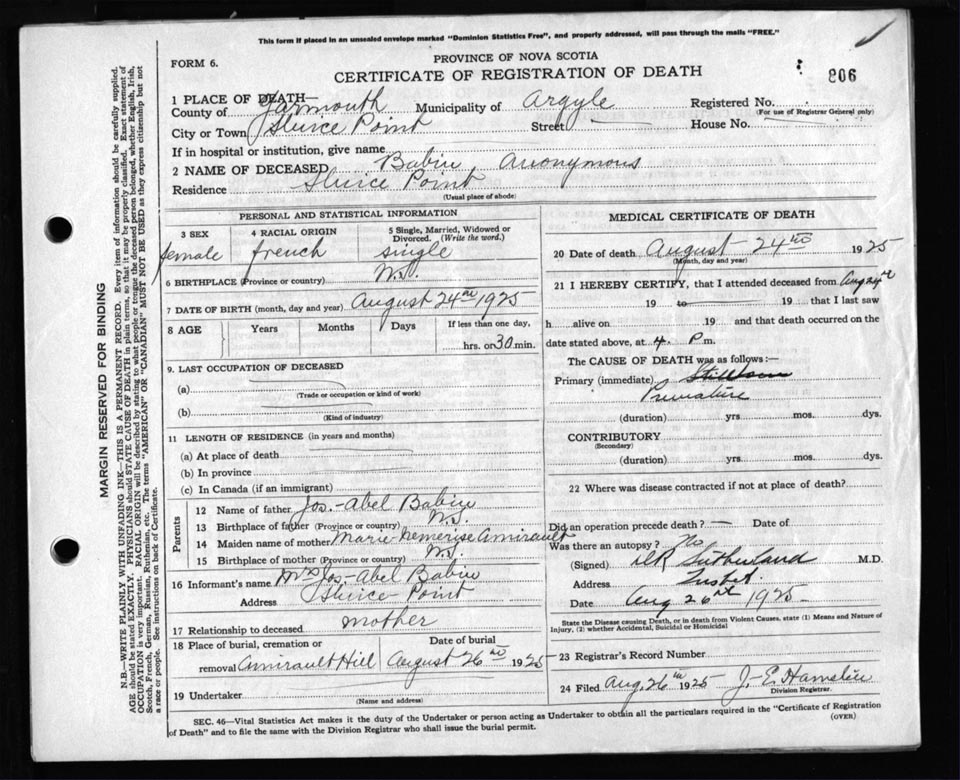 This form if placed in an unsealed envelope marked "Dominion Statistics Free", and properly addressed, will pass through the mails "FREE."
FORM 6.
PROVINCE OF NOVA SCOTIA
CERTIFICATE OF REGISTRATION OF DEATH
806
1 PLACE OF DEATH—
County of Yarmouth Municipality of Argyle Registered No.
(For use of Registrar General only)
City or Town Sluice Point Street House No.
If in hospital or institution, give name
2 NAME OF DECEASED Babin Anonymous
Residence Sluice Point
(Usual place of abode)
PERSONAL AND STATISTICAL INFORMATION
3 SEX 4 RACIAL ORIGIN 5 Single, Married, Widowed or Divorced. (Write the word.)
female french single
6 BIRTHPLACE (Province or country) N.S.
7 DATE OF BIRTH (month, day and year) August 24th 1925
8 AGE Years Months Days If less than one day,
hrs. or 30 min.
9. LAST OCCUPATION OF DECEASED
(a)
(Trade or occupation or kind of work)
(b)
(Kind of industry)
11 LENGTH OF RESIDENCE (in years and months)
(a) At place of death
(b) In province
(c) In Canada (if an immigrant)
Parents
12 Name of father Jos.-Abel Babin
13 Birthplace of father (Province or country) N.S.
14 Maiden name of mother Marie Nemerise Amirault
15 Birthplace of mother (Province or country) N.S.
16 Informant's name Mrs Jos-Abel Babin
Address Sluice-Point
17 Relationship to deceased mother
18 Place of burial, cremation or removal Amirault Hill
Date of burial August 26 1925
19 Undertaker
(Name and address)
MEDICAL CERTIFICATE OF DEATH
20 Date of death August 24th 1925
(Month, day and year)
21 I HEREBY CERTIFY, that I attended deceased from Aug 24
19 to 19 that I last saw
h alive on 19 and that death occurred on the
date stated above, at 4 P m.
The CAUSE OF DEATH was as follows:—
Primary (immediate) Stillborn
Premature
(duration) yrs mos. dys.
CONTRIBUTORY
(Secondary)
(duration) yrs. mos. dys.
22 Where was disease contracted if not at place of death?
Did an operation precede death? — Date of
Was there an autopsy? No
(Signed) Sutherland M.D.
Address Tusket
Date Aug 26 1925
State the Disease causing Death, or in death from Violent Causes, state (1) Means and Nature of
Injury, (2) whether Accidental, Suicidal or Homicidal
23 Registrar's Record Number
24 Filed Aug. 26th 1925 J. E.
Division Registrar.
SEC. 46—Vital Statistics Act makes it the duty of the Undertaker or person acting as Undertaker to obtain all the particulars required in the "Certificate of Registration
of Death" and to file the same with the Division Registrar who shall issue the burial permit.
(OVER)
MARGIN RESERVED FOR BINDING
N.B.—WRITE PLAINLY WITH UNFADING INK—THIS IS A PERMANENT RECORD. Every item of information should be carefully supplied.
AGE should be stated EXACTLY. PHYSICIANS should STATE CAUSE OF DEATH in plain terms, so that it may be properly classified. Exact statement of
OCCUPATION is very important. RACIAL ORIGIN will be described by stating to what people or tongue the deceased person belonged, whether English, Irish,
Scotch, French, German, Russian, Ruthenian, etc. The terms "AMERICAN" OR "CANADIAN" MUST NOT BE USED as they express citizenship but not
a race or people. See instructions on back of Certificate.